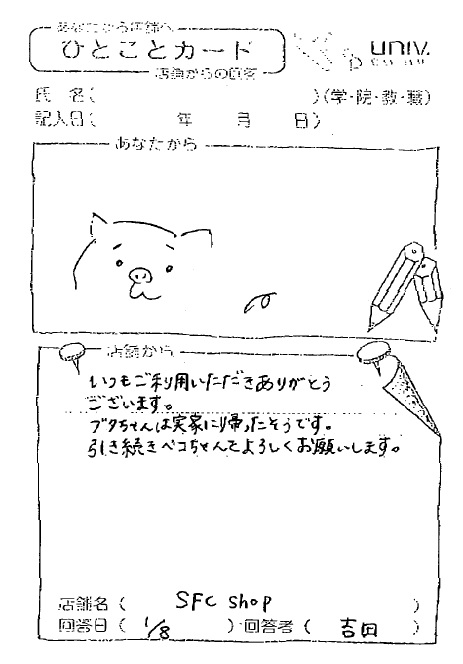 あなたから店舗へ
ひとことカード
店舗からの回答
univ.
co-op
氏 名( )(学・院・教・職)
記入日( 年 月 日)
あなたから
店舗から
いつもご利用いただきありがとう
ございます。
ブタちゃんは実家に帰ったそうです。
引き続きペコちゃんでよろしくお願いします。
店舗名( SFC shop )
回答日( 1/8 )・回答者( 吉田 )